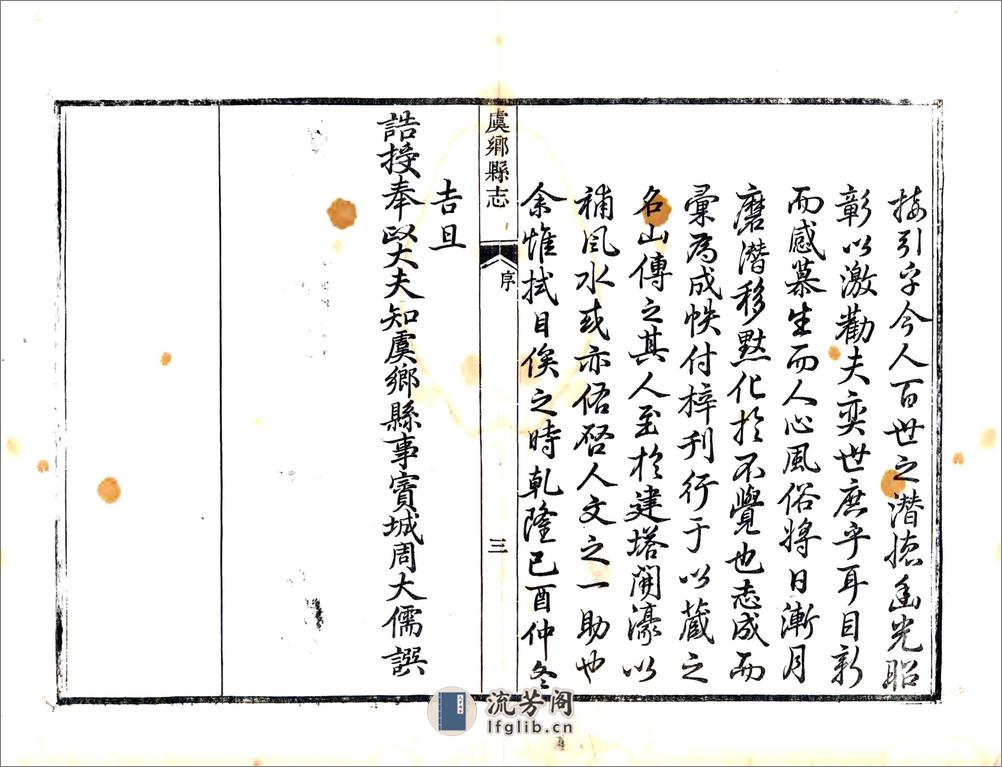 接引字今人百世之潛德幽光昭
彰以激勸夫奕世庶乎耳目新
而感慕生而人心風俗將日漸月
磨潛移默化於不覺也志成而
彙為成帙付梓刊行于以蔵之
名山傳之其人至於建塔開濠以
補風水或亦俻啓人文之一助也
余惟拭目俟之時乾隆己酉仲冬
虞鄉縣志
序
三
吉旦
誥授奉政大夫知虞鄉縣事寳城周大儒譔
流芳阁
lfglib.cn